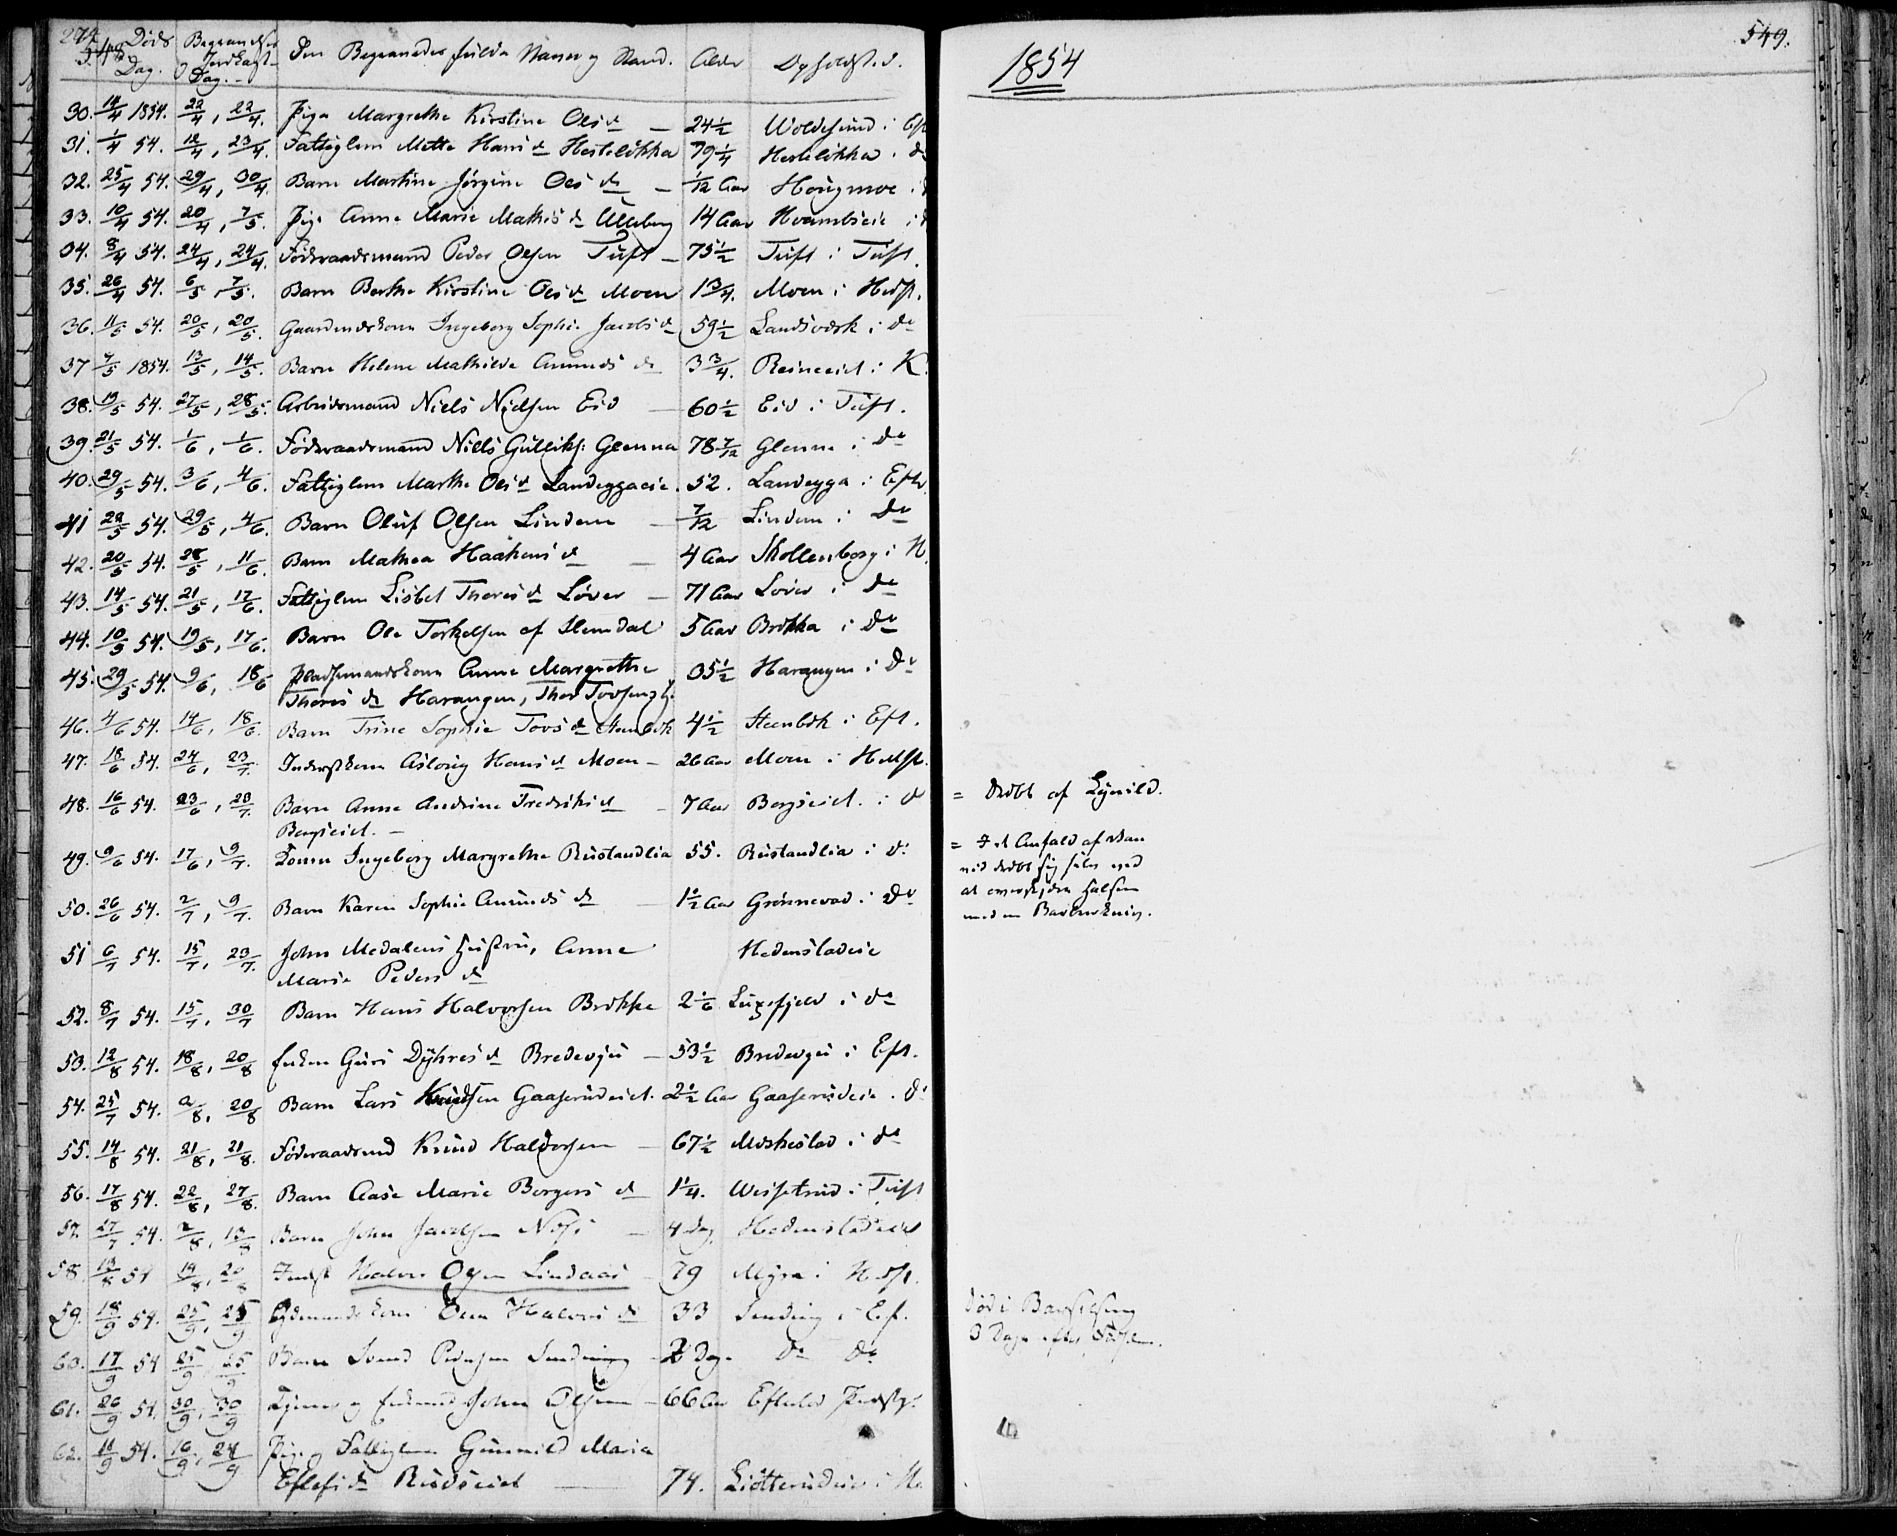 274
548
Døds Dag. Begravelses Jordkast. Dag. Den Begravedes fulde Navn og Stand. Alder Opholdst.d.
30. 14/4 1854. 22/4, 22/4. Pige Margrethe Kirstine Olsd 24 1/2 Woldesund i Eft
31. 1/4 54. 12/4, 23/4. Fattiglem Mette Hansd Hesteløkka 79 1/4 Hesteløkka i d
32. 25/4 54. 29/4, 30/4. Barn Martine Jørgine Olsd 1/12 Aar Hougmoe i
33. 10/4 54. 20/4, 7/5. Pige Anne Marie Mathisd Ulleberg 14 Aar Hvambseie i d
34. 8/4 54. 24/4, 24/4. Føderaadsmand Peder Olsen Tuft 75 1/2 Tuft i Tuft.
35. 26/4 54. 6/5, 7/5. Barn Berthe Kirstine Olsd Moen 1 3/4. Moen i Hedst.
36. 11/5 54. 20/5, 20/5. Gaardmdskone Ingeborg Sophie Jacobsd 59 1/2 Landsværk i do
37 7/5 1854. 13/5, 14/5. Barn Helene Mathilde Amunds d 3 3/4. Reineeiet i K.
38. 19/5 54. 27/5, 28/5. Arbeidsmand Niels Nielsen Eid 60 1/2 Eid i Tuft.
39. 21/5 54. 1/6, 1/6. Føderaadsmand Niels Gulliks: Glenna 78 7/12 Glenna i do
40. 29/5 54. 3/6, 4/6. Fattiglem Marthe Olsd Landeggaeie. 52. Landegga i Eft.
41 22/5 54. 29/5, 4/6. Barn Oluf Olsen Lindem 7/12 Lindem i do
42. 20/5 54. 28/5, 11/6. Barn Mathea Haakens d 4 Aar Skollenborg i H.
43. 14/5 54. 21/5, 17/6. Fattiglem Lisbet Thoresd Løver 71 Aar Løver i do
44. 10/5 54. 19/5, 17/6. Barn Ole Torkelsen af Slemdal 5 Aar Brøkka i do
45. 29/5 54. 9/6, 18/6 Pladsmandskone Anne Margrethe 35 1/2 Harangen i do
Thores d Harangen, Thor
46. 4/6 54. 14/6, 18/6. Barn Trine Sophie Tovsd Steenbæk 4 1/2 Steenbæk i Eft.
47. 18/6 54. 24/6, 23/7. Inderstkone Asloug Hansd Moen 26 Aar Moen i Hedst.
48. 16/6 54. 23/6, 23/7. Barn Anne Andrine Fredriksd 7 Aar Bergseiet. i do
Bergseiet.
49. 9/6 54. 17/6, 9/7. Konen Ingeborg Margrethe Rustandlia 55. Rustandlia i do
50. 26/6 54. 2/7, 9/7. Barn Karen Sophie Amunds d 1 1/2 Aar Grønnevod i do
51 6/7 54. 15/7, 23/7. John Medalens Hustru, Anne Hedenstadeie
Marie Peders d
52. 8/7 54. 15/7, 30/7 Barn Hans Halvorsen Brøkke 2 1/6 Luxefjeld i do
53. 12/8 54. 18/8, 20/8 Enken Guri Dyhresd Bredevju 53 1/2 Bredevju i Eft.
54. 25/7 54. 2/8, 20/8 Barn Lars Knudsen Gaaserudeiet. 2 1/2 Aar Gaaserudeie i do
55. 14/8 54. 21/8, 21/8. Føderaadsmd Knud Halvorsen 67 1/2 Moskestad i do
56. 17/8 54. 22/8, 27/8. Barn Aase Marie Borgers d 1 1/4. Wesetrud i Tuft
57. 27/7 54. 2/8, 13/8 Barn John Jacobsen 4 Dag Hedenstadeie
58. 13/8 54 19/8, 20/8 Inderst Halvor Olsen Lindaas 79 Myra i Hedst.
59. 18/9 54. 25/9, 25/9 Gdemands Kone Halvors d 33 Sending i Ef.
60. 17/9 54 25/9, 25/9 Barn Svend Pedersen Sending 2 Dag. do do
61. 26/9 54. 30/9, 30/9 og Enkemd John Olsen 66 Aar Efteløt Præstgd.
62. 11/9 54. 16/9, 24/9 Pige, Fattiglem Gunnild Maria
Eflefsd Rudseiet 74. i He
1854
549.
= dræbt af Lynild.
= I et Anfald af Van
vid dræbt sig selv ved
at overskjære Halsen
med en Barbeerkniv.
død i Barselseng
3 Dage efter Fødselen.